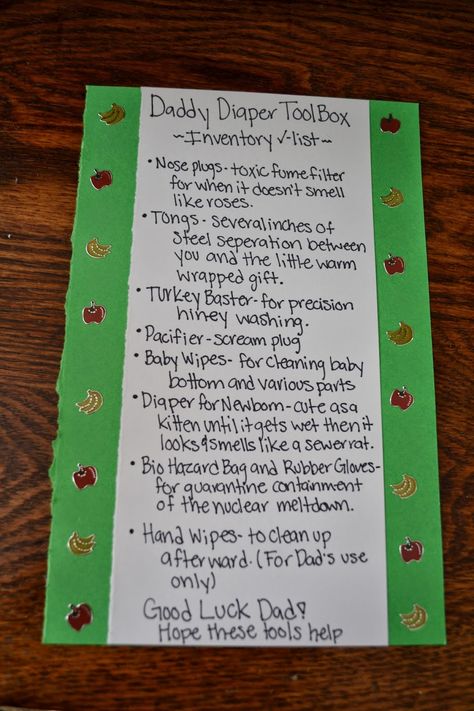 Daddy Diaper ToolBox
~Inventory √-list~
• Nose plugs- toxic fume filter
for when it doesn't smell
like roses.
• Tongs - several inches of
steel seperation between
you and the little warm
wrapped gift.
• Turkey Baster- for precision
hiney washing.
• Pacifier- scream plug
• Baby Wipes- for cleaning baby
bottom and various parts
• Diaper for Newborn- cute as a
kitten until it gets wet then it
looks & smells like a sewer rat.
• Bio Hazard Bag and Rubber Gloves-
for quarantine containment
of the nuclear meltdown.
• Hand Wipes- to clean up
afterward. (For Dad's use
only)
Good Luck Dad!
Hope these tools help